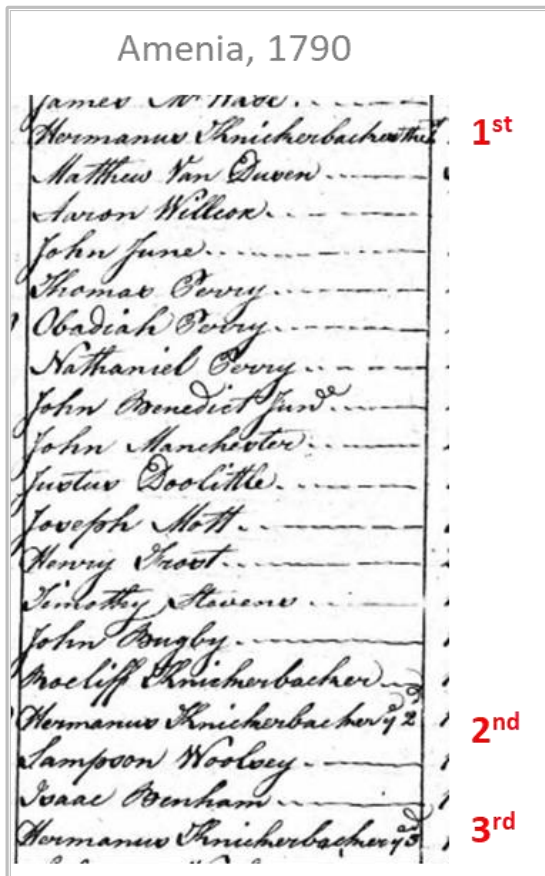 Amenia, 1790
James Mc
Hermanus Knickerbacker the 1st
1st
Matthew Van Dusen
Aaron Willcox
John June
Thomas Perry
Obadiah Perry
Nathaniel Perry
John Benedict Junr
John Manchester
Justus Doolittle
Joseph Mott
Henry Frost
Timothy Stevens
John Bugby
Roeliff Knickerbacker
Hermanus Knickerbacker ye 2d
2nd
Sampson Woolsey
Isaac Benham
Hermanus Knickerbacker ye 3d
3rd